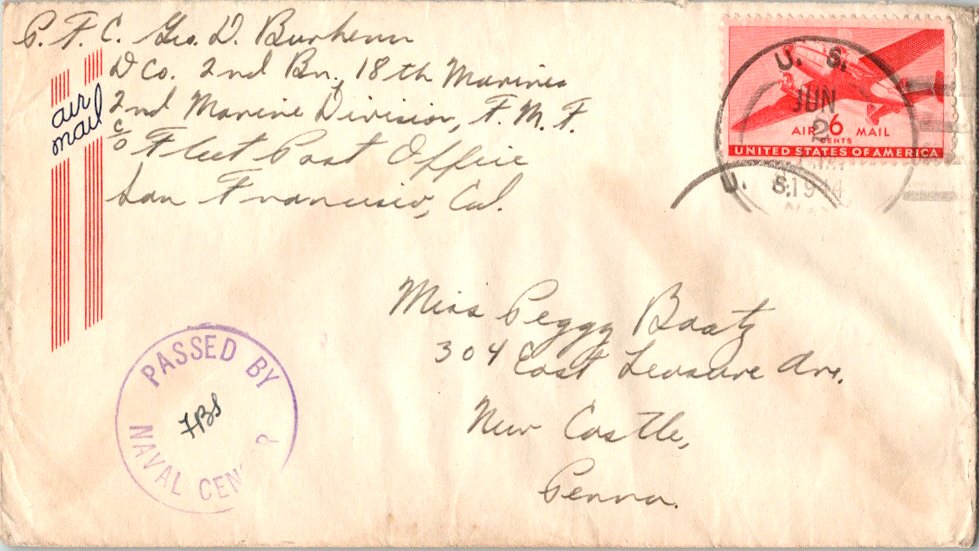 P. F. C. Geo. D. Burhenn
D Co. 2nd Bn, 18th Marines
2nd Marine Division, F. M. F.
c/o Fleet Post Office
San Francisco, Cal.
air
mail
U. S.
JUN
2
1944
AIR 6 MAIL
CENTS
UNITED STATES OF AMERICA
U. S.
Miss Peggy Baatz
304 East Leasure Ave.
New Castle,
Penna.
PASSED BY
NAVAL CENSOR